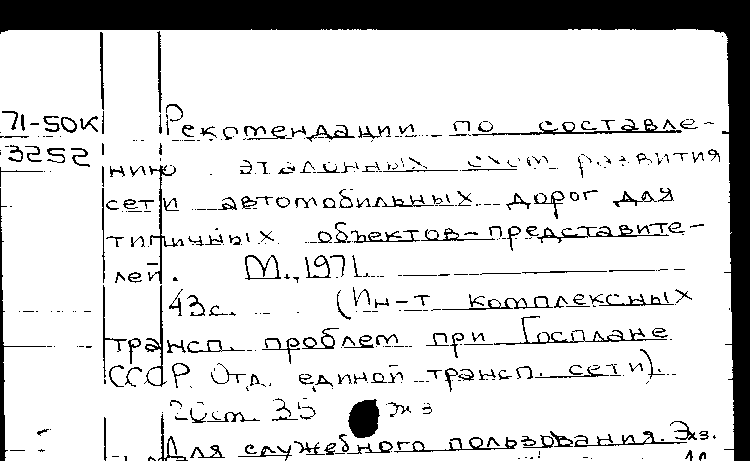 71-50К
3252
Рекомендации по составле-
нию эталонных схем развития
сети автомобильных дорог для
типичных объектов-представите-
лей. М., 1971.
43с. (Ин-т комплексных
трансп. проблем при Госплане
СССР. Отд. единой трансп. сети).
35 экз
Для служебного пользования. Экз.